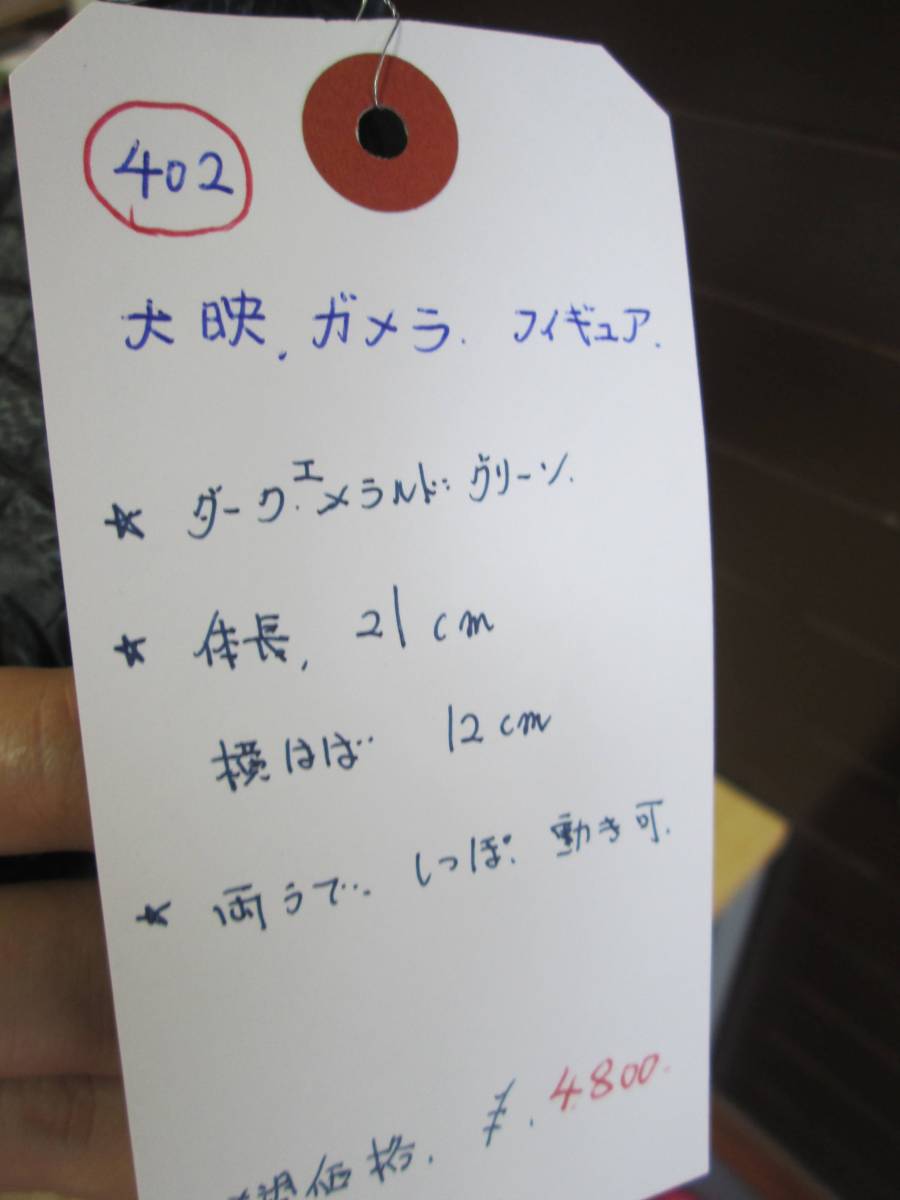 402
大映. ガメラ. フィギュア.
★ ダーク.エメラルド.グリーン.
★ 体長. 21cm
横はば 12cm
★ 両うで. しっぽ. 動き可.
価格. ¥.4800.